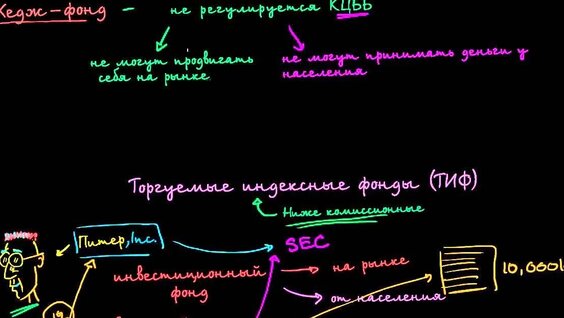 Хедж-фонд - не регулируется КЦББ
не могут продвигать
себя на рынке
не могут принимать деньги у
населения
Торгуемые индексные фонды (ТИФ)
Ниже комиссионные
Питер, Inc.
SEC
инвестиционный
фонд
на рынке
от населения